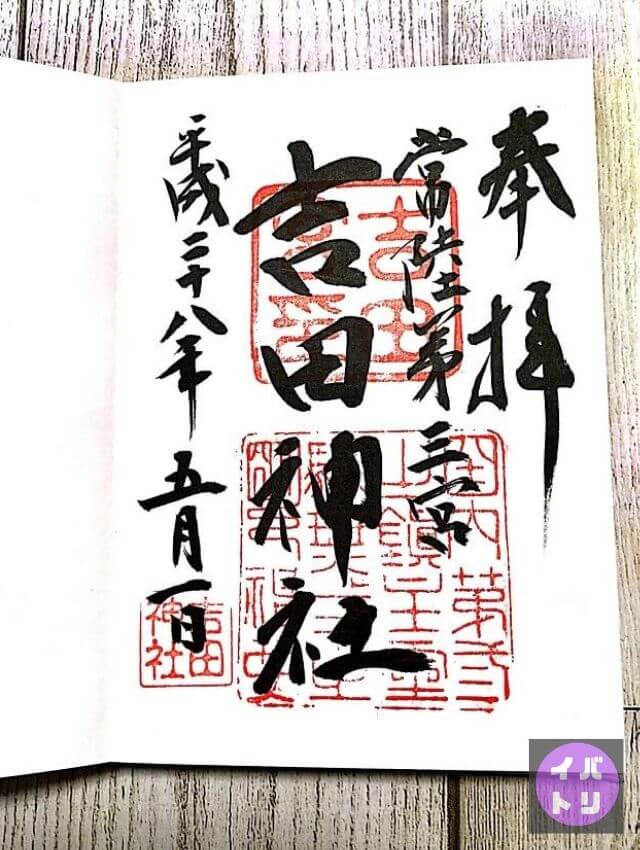 奉拝
常陸第三宮
吉田神社
平成二十八年五月一日
吉田
神社
イバ
トリ